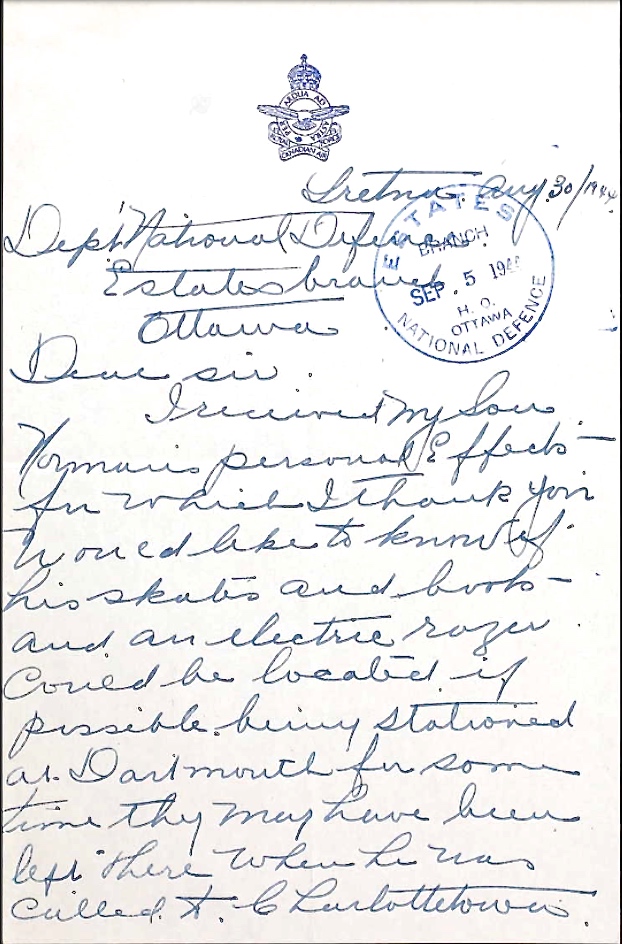 PER ARDUA AD ASTRA
ROYAL CANADIAN AIR FORCE
Gretna. Aug. 30/1944.
Dep't National Defence.
Estates branch
Ottawa
ESTATES
BRANCH
SEP. 5 1944
H. Q.
OTTAWA
NATIONAL DEFENCE
Dear sir.
I received My Son
Norman's personal Effects
for which I thank you
Would like to know if
his skates and books
and an electric razer
Could be located if
possible. being stationed
at Dartmouth for some
time they may have been
left there when he was
called to Charlottetown.